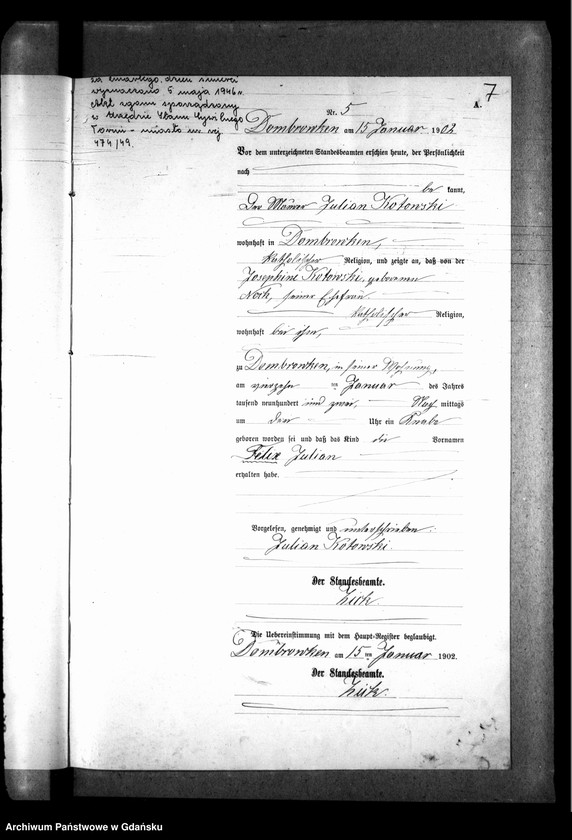 za zmarłego. dzień śmierci
wyznaczono 5 maja 1946 r.
Akt zgonu sporządzony
w Urzędzie Stanu Cywilnego
Toruń - miasto nr
474/49.
7
A.
Nr. 5
Dombrowken am 15 Januar 1902
Vor dem unterzeichneten Standesbeamten erschien heute, der Persönlichkeit
nach
be kannt,
Der Maurer Julian Kotowski
wohnhaft in Dombrowken,
katholischer Religion, und zeigte an, daß von der
Josephine Kotowski, geborenen
Nock, seiner Ehefrau
katholischer Religion,
wohnhaft bei ihm,
zu Dombrowken, in seiner Wohnung,
am vierzehn ten Januar des Jahres
tausend neunhundert und zwei, Nach mittags
um drei Uhr ein Knabe
geboren worden sei und daß das Kind die Vornamen
Felix Julian
erhalten habe.
Vorgelesen, genehmigt und unterschrieben:
Julian Kotowski.
Der Standesbeamte.
Die Uebereinstimmung mit dem Haupt-Register beglaubigt.
Dombrowken am 15 ten Januar 1902.
Der Standesbeamte.
Archiwum Państwowe w Gdańsku